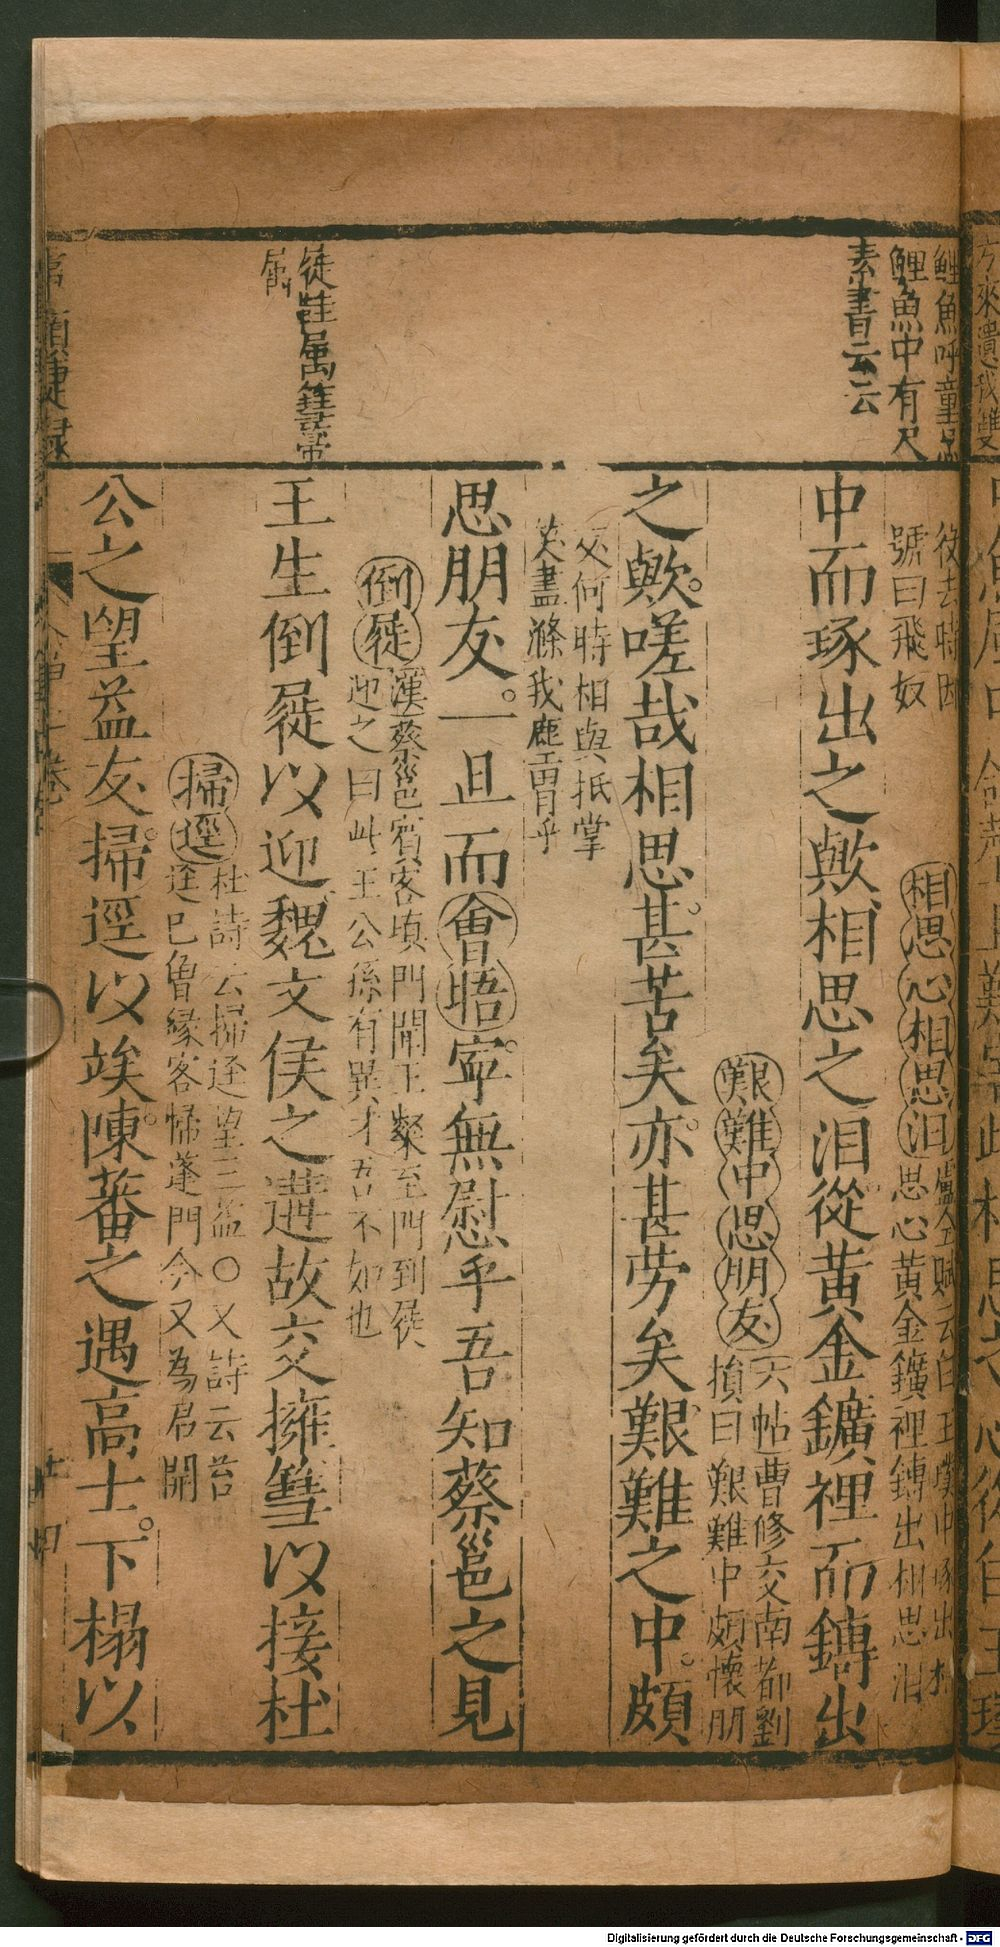 鯉魚呼童烹
鯉魚中有尺
素書云云
徒跣属鞋帚
属
後去時因
號曰飛奴
相思心相思泪盧仝賦云白玉璞中琢出相
思心黃金鑛裡鑄出相思泪
中而琢出之歟相思之泪從黃金鑛裡而鑄出
艱難中思朋友六帖曹修交南都劉
損曰艱難中頗懷朋
之歟嗟哉相思甚苦矣亦甚劳矣艱難之中頗
友何時相與抵掌
笑盡滌我塵胃乎
思朋友一旦而會晤寧無慰乎吾知蔡邕之見
倒屣漢蔡邕賓客填門聞王粲至門到屣
迎之曰此王公孫有異才吾不如也
王生倒屣以迎魏文侯之遘故交擁篲以接杜
掃逕杜詩云掃逕望三益○又詩云苔
逕已曾緣客帚蓬門今又為君開
公之望益友掃逕以竢陳蕃之遇高士下榻以
Digitalisierung gefördert durch die Deutsche Forschungsgemeinschaft - DFG